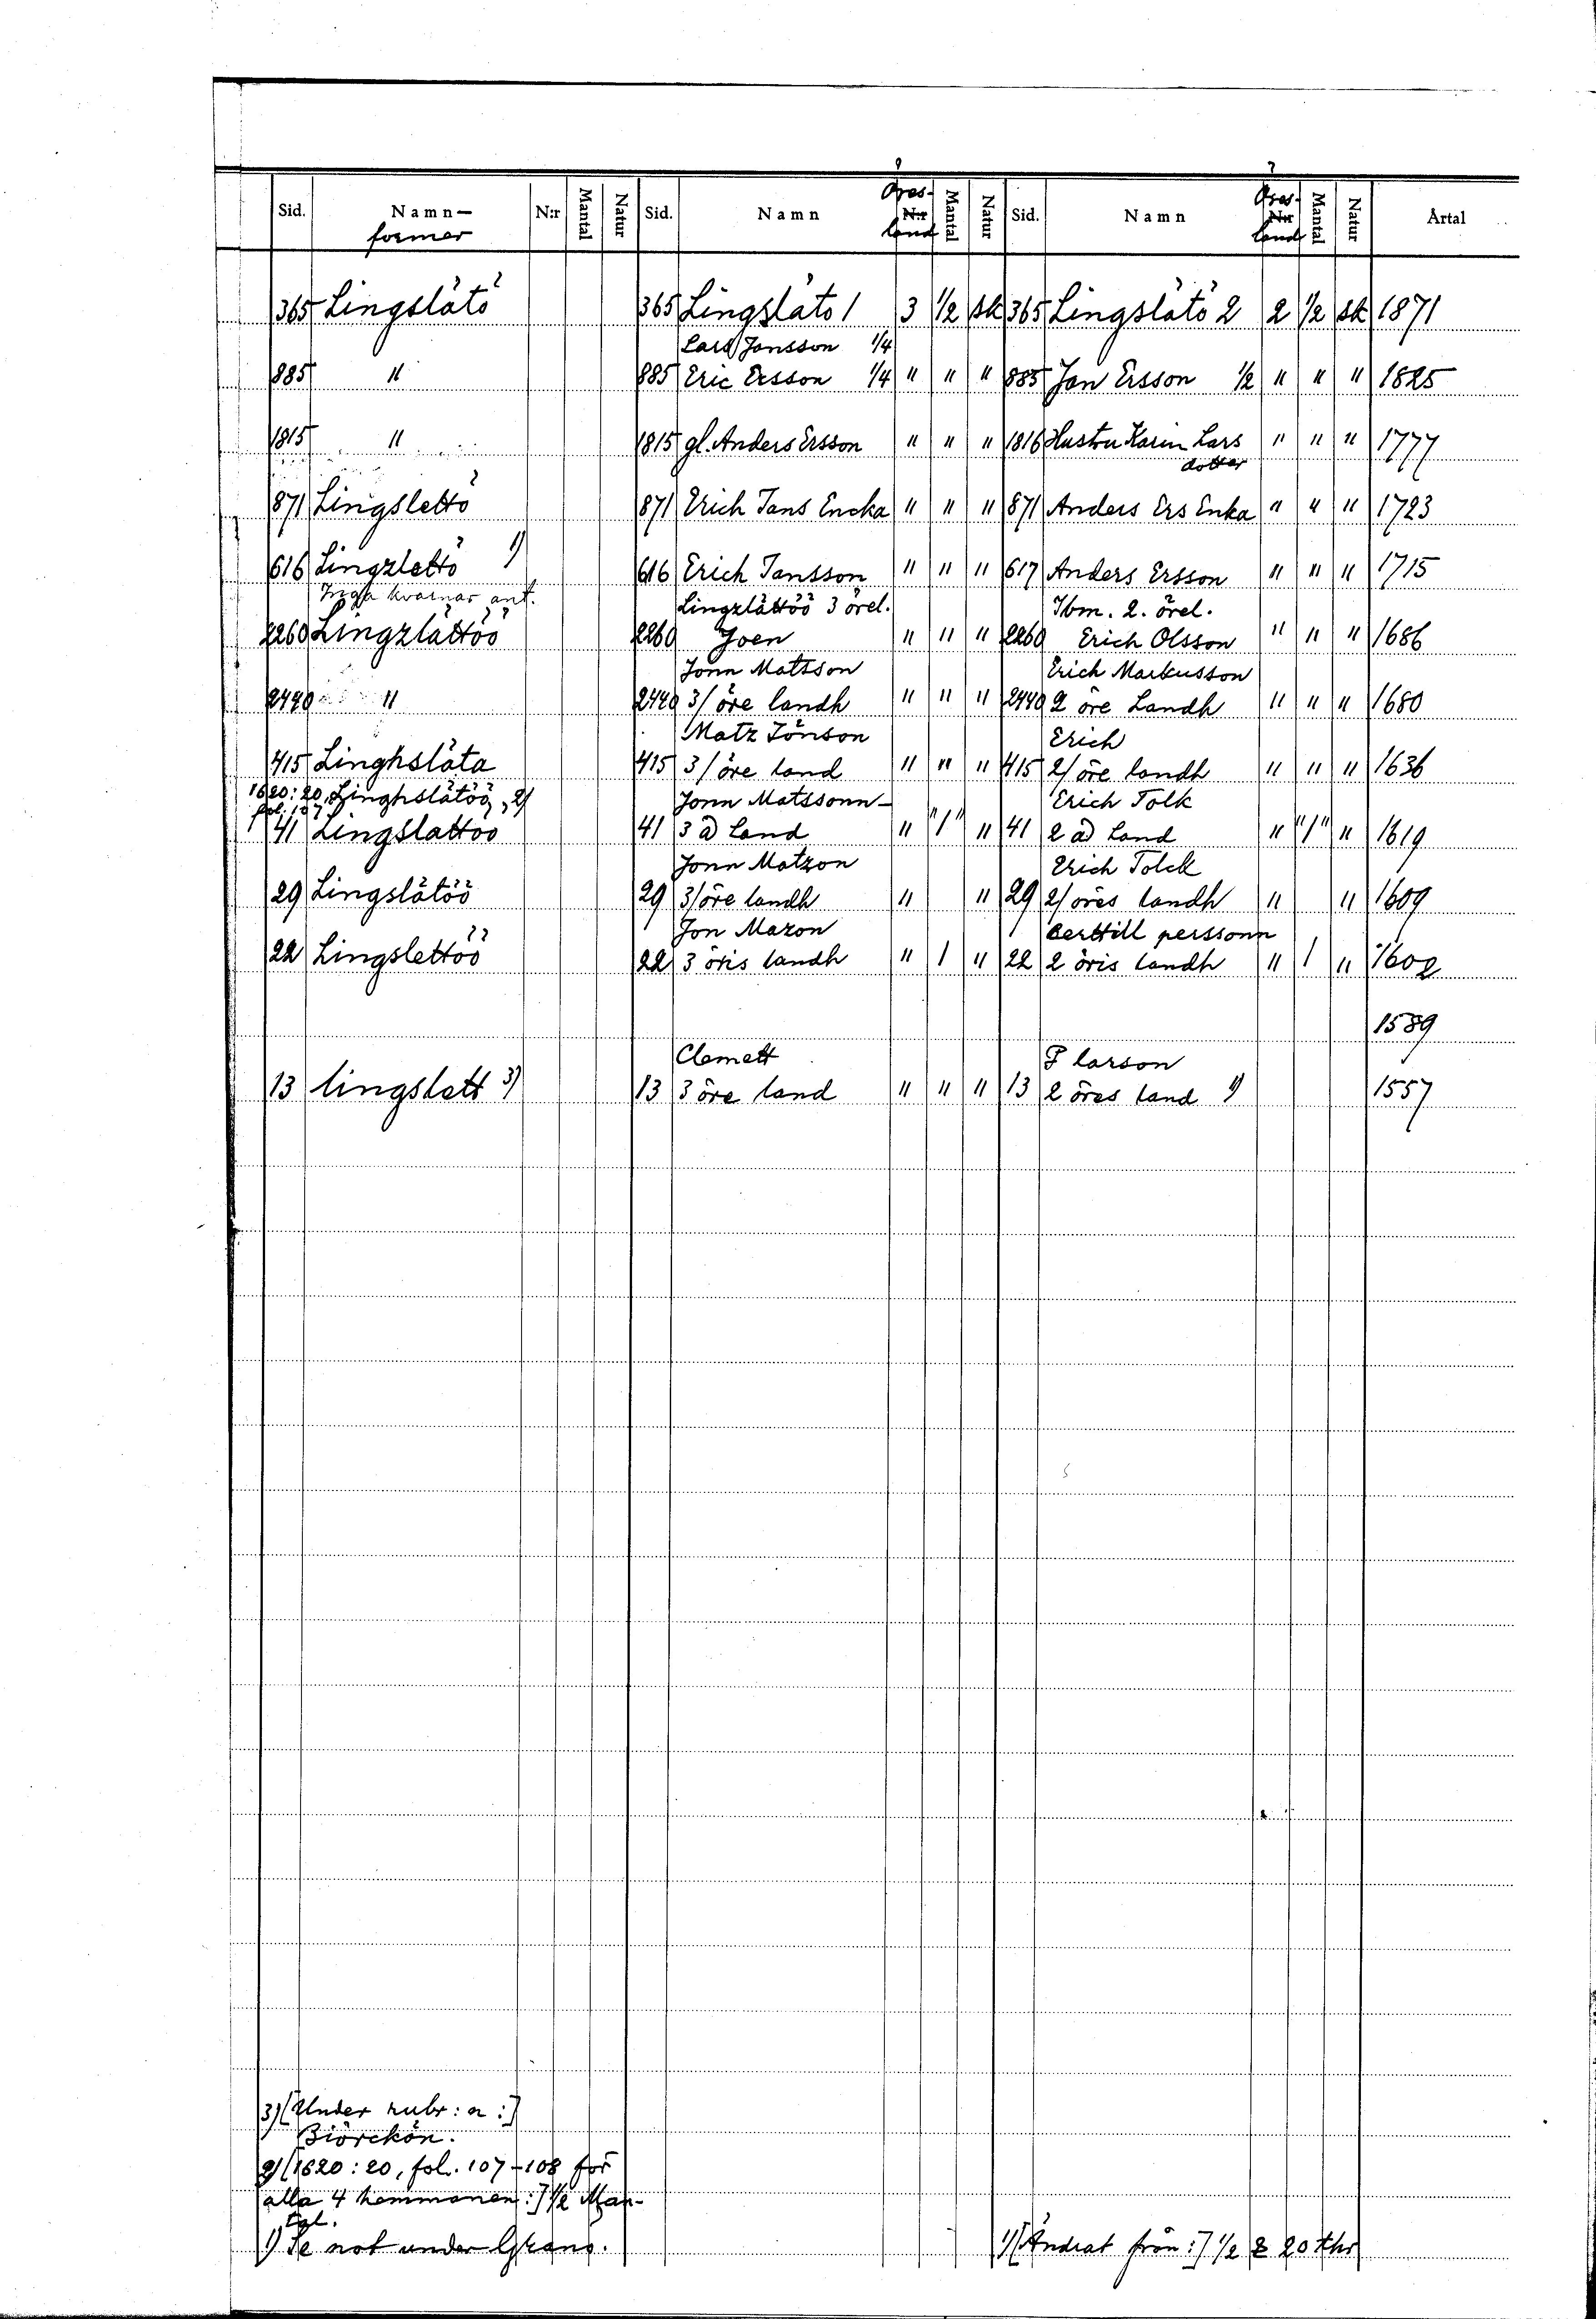 Sid. Namn- N:r Mantal Natur Sid. Namn Öres- N:r Mantal Natur Sid. Namn Öres- N:r Mantal Natur Årtal
former land land
365 Lingslätö 365 Lingsläto 1 3 1/2 sk 365 Lingslätö 2 2 1/2 sk 1871
Lars Jansson 1/4
885 " 885 Eric Ersson 1/4 " " " 885 Jan Ersson 1/2 " " " 1825
1815 " 1815 gl. Anders Ersson " " " 1816 Hustru Karin Lars " " " 1777
dotter
871 Lingslettö 871 Erich Jans Encka " " " 871 Anders Ers Enka " " " 1723
616 Lingzlettö 1) 616 Erich Jansson " " " 617 Anders Ersson " " " 1715
Inga kvarnar ant. Lingzlättöö 3 örel. Ibm. 2. örel.
2260 Lingzlättöö 2260 Joen " " " 2260 Erich Olsson " " " 1686
Jonn Matsson Erich Markusson
2440 " 2440 3/ öre landh " " " 2440 2 öre Landh " " " 1680
Matz Jönson Erich
415 Linghsläta 415 3/ öre land " " " 415 2/ öre landh " " " 1636
1620:20, Linghslätöö, 2) Jonn Matssonn- Erich Tolk
fol. 107
41 Lingslattoo 41 3 a) Land " "1" " 41 2 a) Land " "1" " 1619
Jonn Matzon Erich Tolck
29 Lingslätöö 29 3/öre landh " " 29 2/ öres landh " " 1609
Jon Mazon Berttill perssonn
22 Lingslettöö 22 3 öris landh " 1 " 22 2 öris landh " 1 " 1602
1589
Clemett P larson
13 lingslett 3) 13 3 öre land " " " 13 2 öres land 1) 1557
3) [Under rubr: n :]
Biörckön.
2) [1620:20, fol. 107-108 för
alla 4 hemmanen :] 1/2 Man-
tgl.
1) Se not under Grano. 1) [Ändrat från :] 1/2 & 20 thr